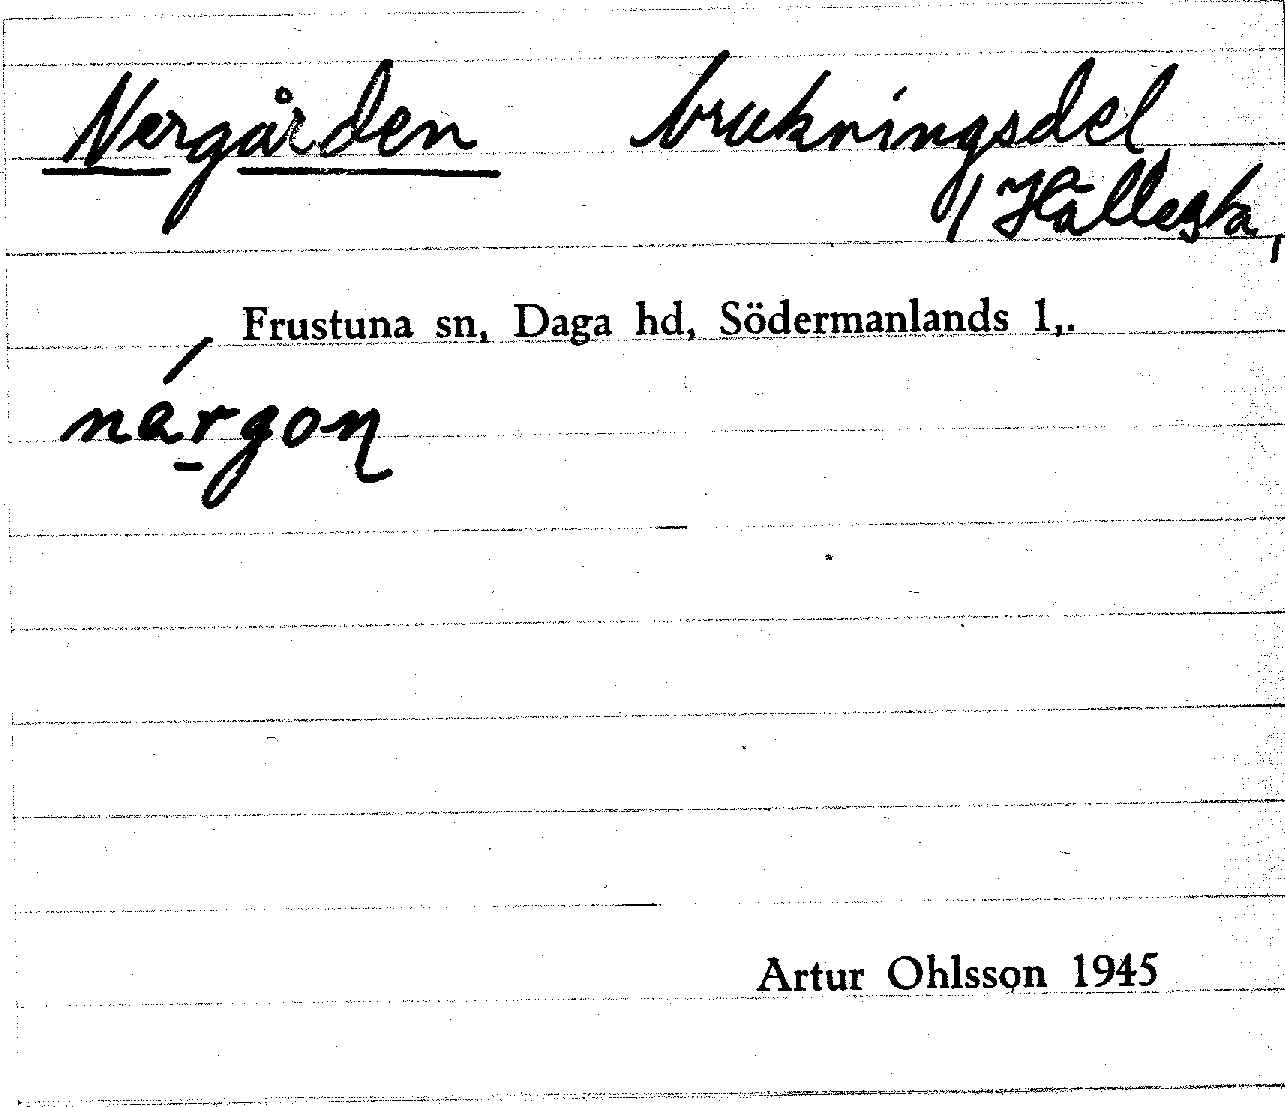 Nergården brukningsdel
i Hällesta,
Frustuna sn, Daga hd, Södermanlands l,.
nárgon
Artur Ohlsson 1945